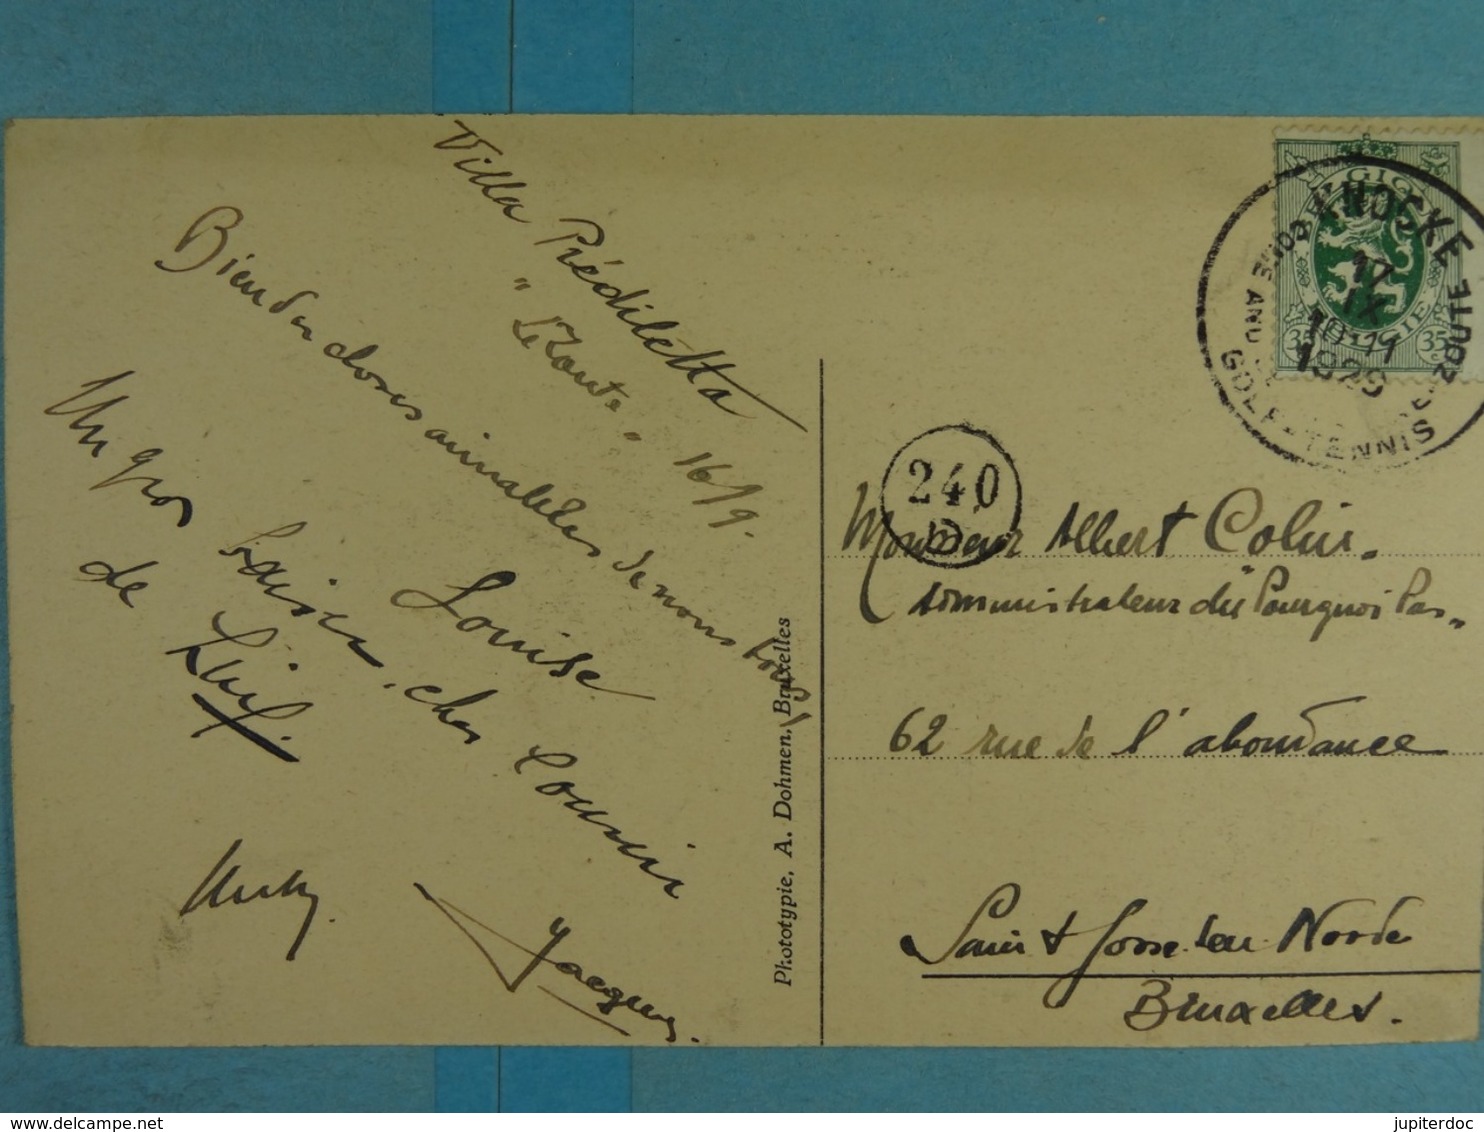 Villa Prédilètta
"Le Zoute" 16/9.
Bien des choses aimables de nous tous
Louise
Un gros baiser, cher Cousin
de
Jacques.
Phototypie, A. Dohmen, Bruxelles
BELGIQUE
BELGIE
35 c 35 c
KNOCKE
17
IX
10-11
1929
ZOUTE
GOLF-TENNIS
240
D
Monsieur Albert Colin.
administrateur du "Pourquoi Pas"
62 rue de l'abondance
Saint Josse-ten-Noode
Bruxelles.
jupiterdoc